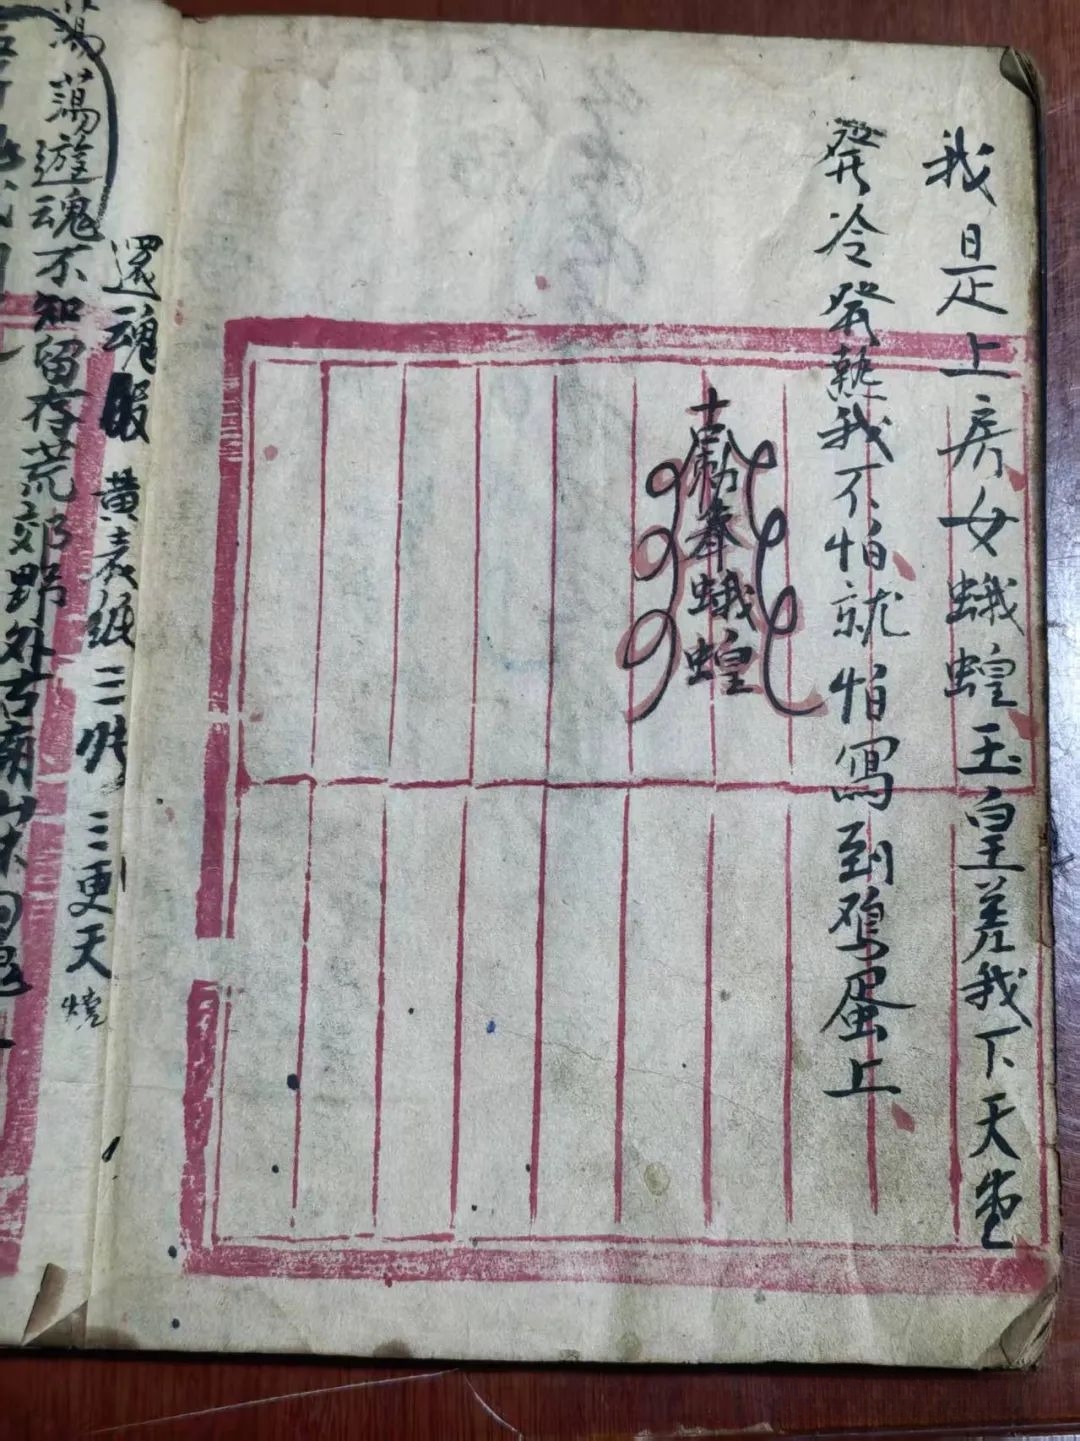 我是上房女蛾蝗玉皇差我下天堂
發冷發熱我不怕就怕寫到鴉蛋上
奉蛾蝗
還魂
黃表紙三
三更天
燒
蕩蕩遊魂不知留存荒郊野外古廟山林